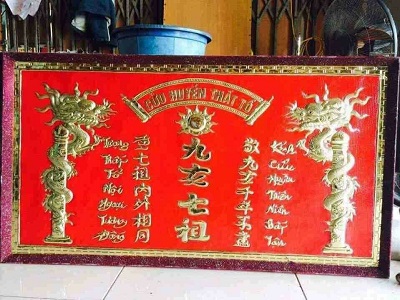 CỬU HUYỀN THẤT TỔ
九玄七祖
敬九玄千年不盡
Kính Cửu Huyền Thiên Niên Bất Tận
重七祖內外相同
Trọng Thất Tổ Nội Ngoại Tương Đồng